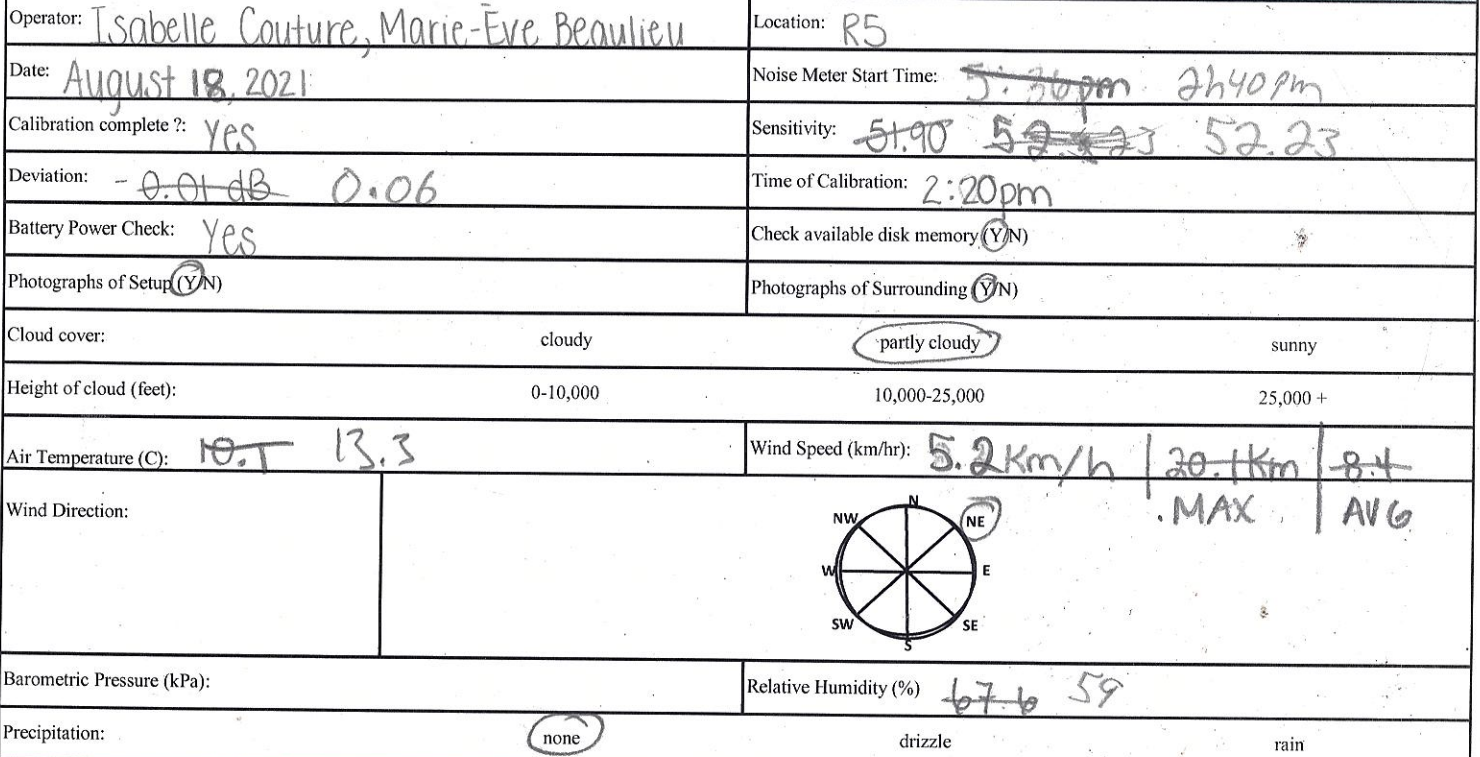 Operator: Isabelle Couture, Marie-Ève Beaulieu Location: R5
Date: August 18, 2021 Noise Meter Start Time: 5:36pm 2h40pm
Calibration complete ?: Yes Sensitivity: 51.90 52.23 52.23
Deviation: -0.01 dB 0.06 Time of Calibration: 2:20pm
Battery Power Check: Yes Check available disk memory (Y/N)
Photographs of Setup (Y/N) Photographs of Surrounding (Y/N)
Cloud cover: cloudy partly cloudy sunny
Height of cloud (feet): 0-10,000 10,000-25,000 25,000 +
Air Temperature (C): 10.1 13.3 Wind Speed (km/hr): 5.2 Km/h | 20.1 Km | 8.4
MAX | AVG
Wind Direction:
N
NW NE
W E
SW SE
S
Barometric Pressure (kPa): Relative Humidity (%) 67.6 59
Precipitation: none drizzle rain